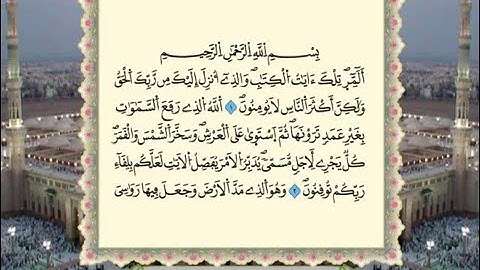 بِسْمِ اللَّهِ الرَّحْمَٰنِ الرَّحِيمِ
الٓمٓرۖ تِلْكَ ءَايَٰتُ الْكِتَٰبِۖ وَالذِےٓ أُنزِلَ إِلَيْكَ مِن رَّبِّكَ الْحَقُّ
وَلَٰكِنَّ أَكْثَرَ النَّاسِ لَا يُومِنُونَۖ ۝١ اللَّهُ الذِے رَفَعَ السَّمَٰوَٰتِ
بِغَيْرِ عَمَدٖ تَرَوْنَهَاۖ ثُمَّ اسْتَوَىٰ عَلَى الْعَرْشِۖ وَسَخَّرَ الشَّمْسَ وَالْقَمَرَۖ
كُلّٞ يَجْرِے لِأَجَلٖ مُّسَمّٗىۖ يُدَبِّرُ الْأَمْرَ يُفَصِّلُ الْأٓيَٰتِ لَعَلَّكُم بِلِقَآءِ
رَبِّكُمْ تُوقِنُونَۖ ۝٢ وَهُوَ الذِے مَدَّ الْأَرْضَ وَجَعَلَ فِيهَا رَوَٰسِىَ